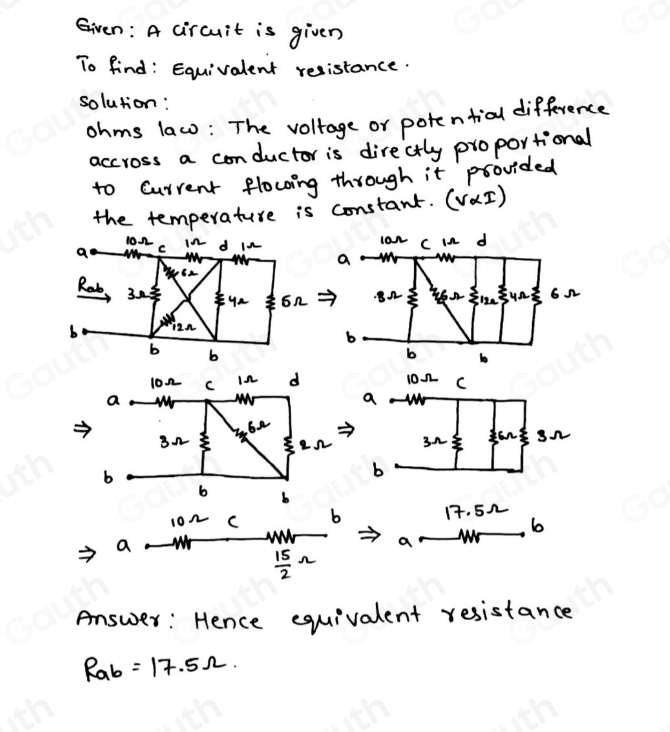 Given: A circuit is given
To find: Equivalent resistance.
Solution:
ohms law: The voltage or potential difference
accross a conductor is directly proportional
to Current flowing through it provided
the temperature is constant. (V∝I)
10Ω c 1Ω d 1Ω 10Ω c 1Ω d
a 6Ω a
Rab 3Ω 4Ω 5Ω ⇒ 3Ω 6Ω 12Ω 4Ω 6Ω
b 12Ω b
b b b b
10Ω c 1Ω d 10Ω c
a a
⇒ 3Ω 6Ω 2Ω ⇒ 3Ω 6Ω 3Ω
b b
b b
10Ω c b 17.5Ω
⇒ a ⇒ a b
15/2 Ω
Answer: Hence equivalent resistance
Rab = 17.5Ω.